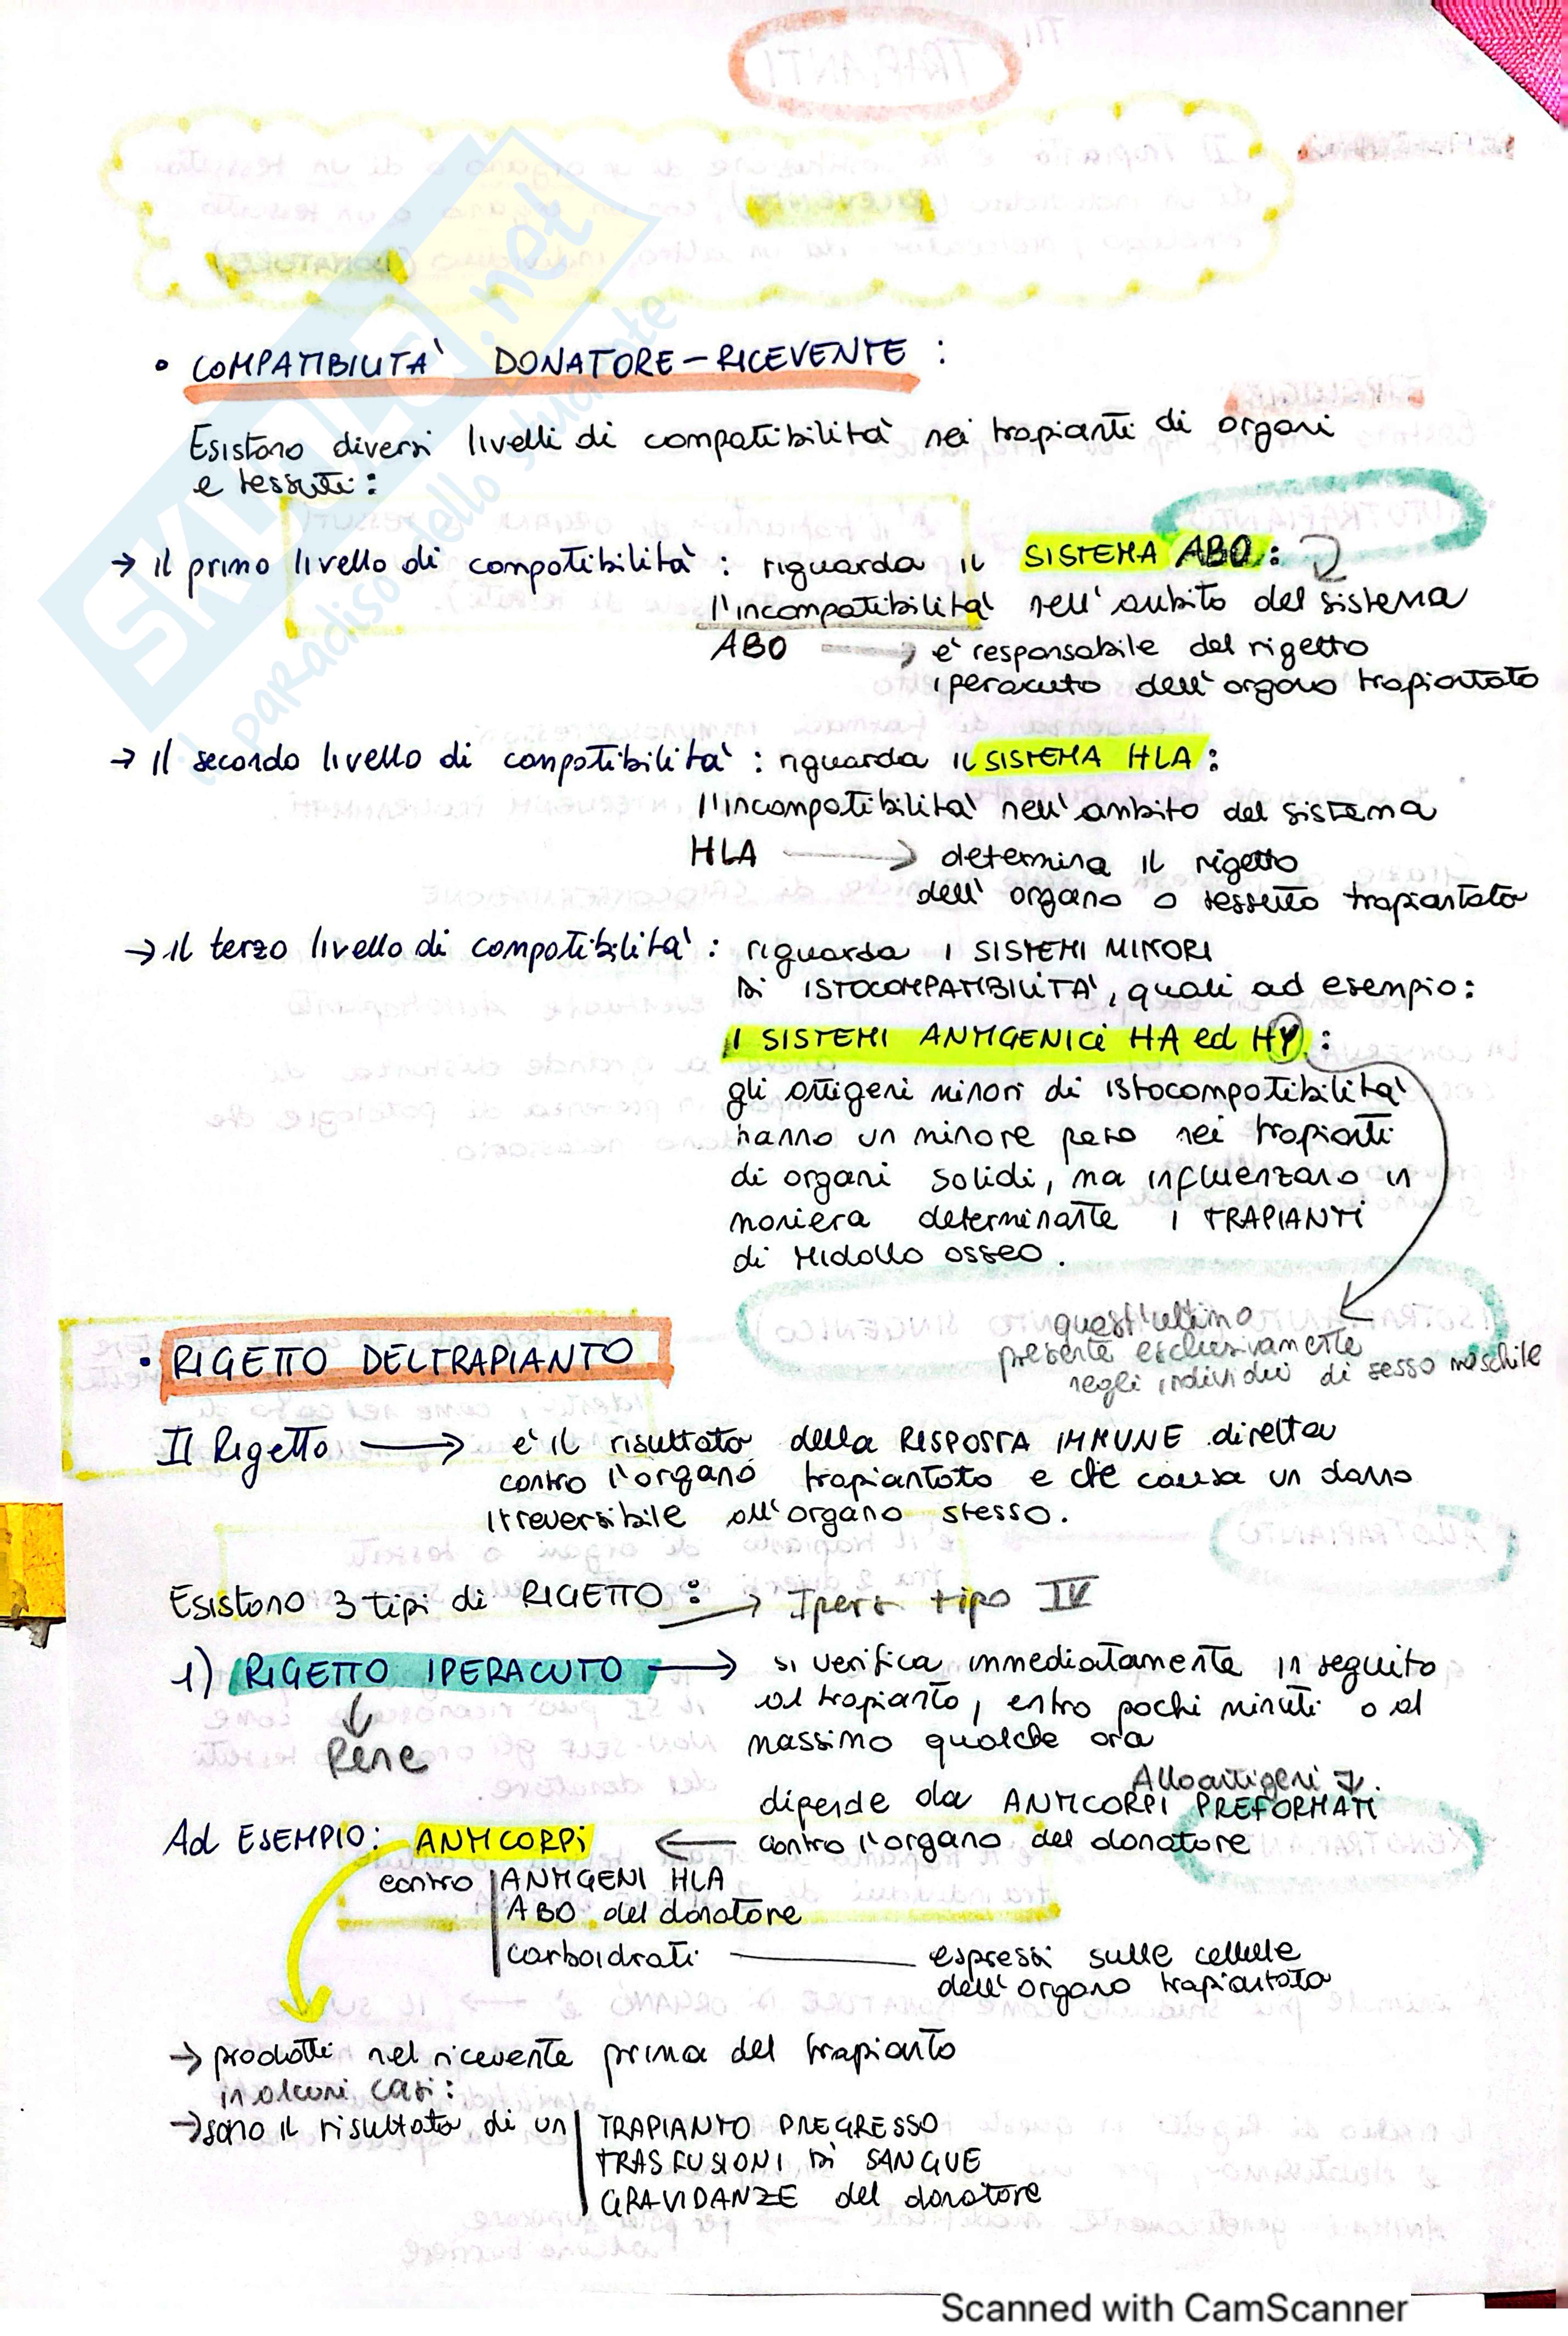 • COMPATIBILITA' DONATORE-RICEVENTE :
Esistono diversi livelli di compatibilità nei trapianti di organi
e tessuti :
→ il primo livello di compatibilità : riguarda il SISTEMA ABO :
l'incompatibilità nell'ambito del sistema
ABO → è responsabile del rigetto
iperacuto dell'organo trapiantato
→ Il secondo livello di compatibilità : riguarda il SISTEMA HLA :
l'incompatibilità nell'ambito del sistema
HLA → determina il rigetto
dell'organo o tessuto trapiantato
→ il terzo livello di compatibilità : riguarda I SISTEMI MINORI
DI ISTOCOMPATIBILITA', quali ad esempio :
I SISTEMI ANTIGENICI HA ed HY :
gli antigeni minori di istocompatibilità
hanno un minore peso nei trapianti
di organi solidi, ma influenzano in
maniera determinante I TRAPIANTI
di MIDOLLO OSSEO .
quest'ultimo
presente esclusivamente
negli individui di sesso maschile
• RIGETTO DEL TRAPIANTO
Il Rigetto → è il risultato della RISPOSTA IMMUNE diretta
contro l'organo trapiantato e che causa un danno
irreversibile all'organo stesso.
Esistono 3 tipi di RIGETTO : → Ipers. tipo IV
1) RIGETTO IPERACUTO → si verifica immediatamente in seguito
al trapianto, entro pochi minuti o al
massimo qualche ora
↓
Rene
Alloantigeni
dipende da ANTICORPI PREFORMATI
contro l'organo del donatore
Ad ESEMPIO : ANTICORPI ←
contro ANTIGENI HLA
ABO del donatore
carboidrati — espressi sulle cellule
dell'organo trapiantato
→ prodotti nel ricevente prima del trapianto
in alcuni casi :
→ sono il risultato di un TRAPIANTO PREGRESSO
TRASFUSIONI DI SANGUE
GRAVIDANZE del donatore
SKUOLA.net
il paradiso dello studente
Scanned with CamScanner